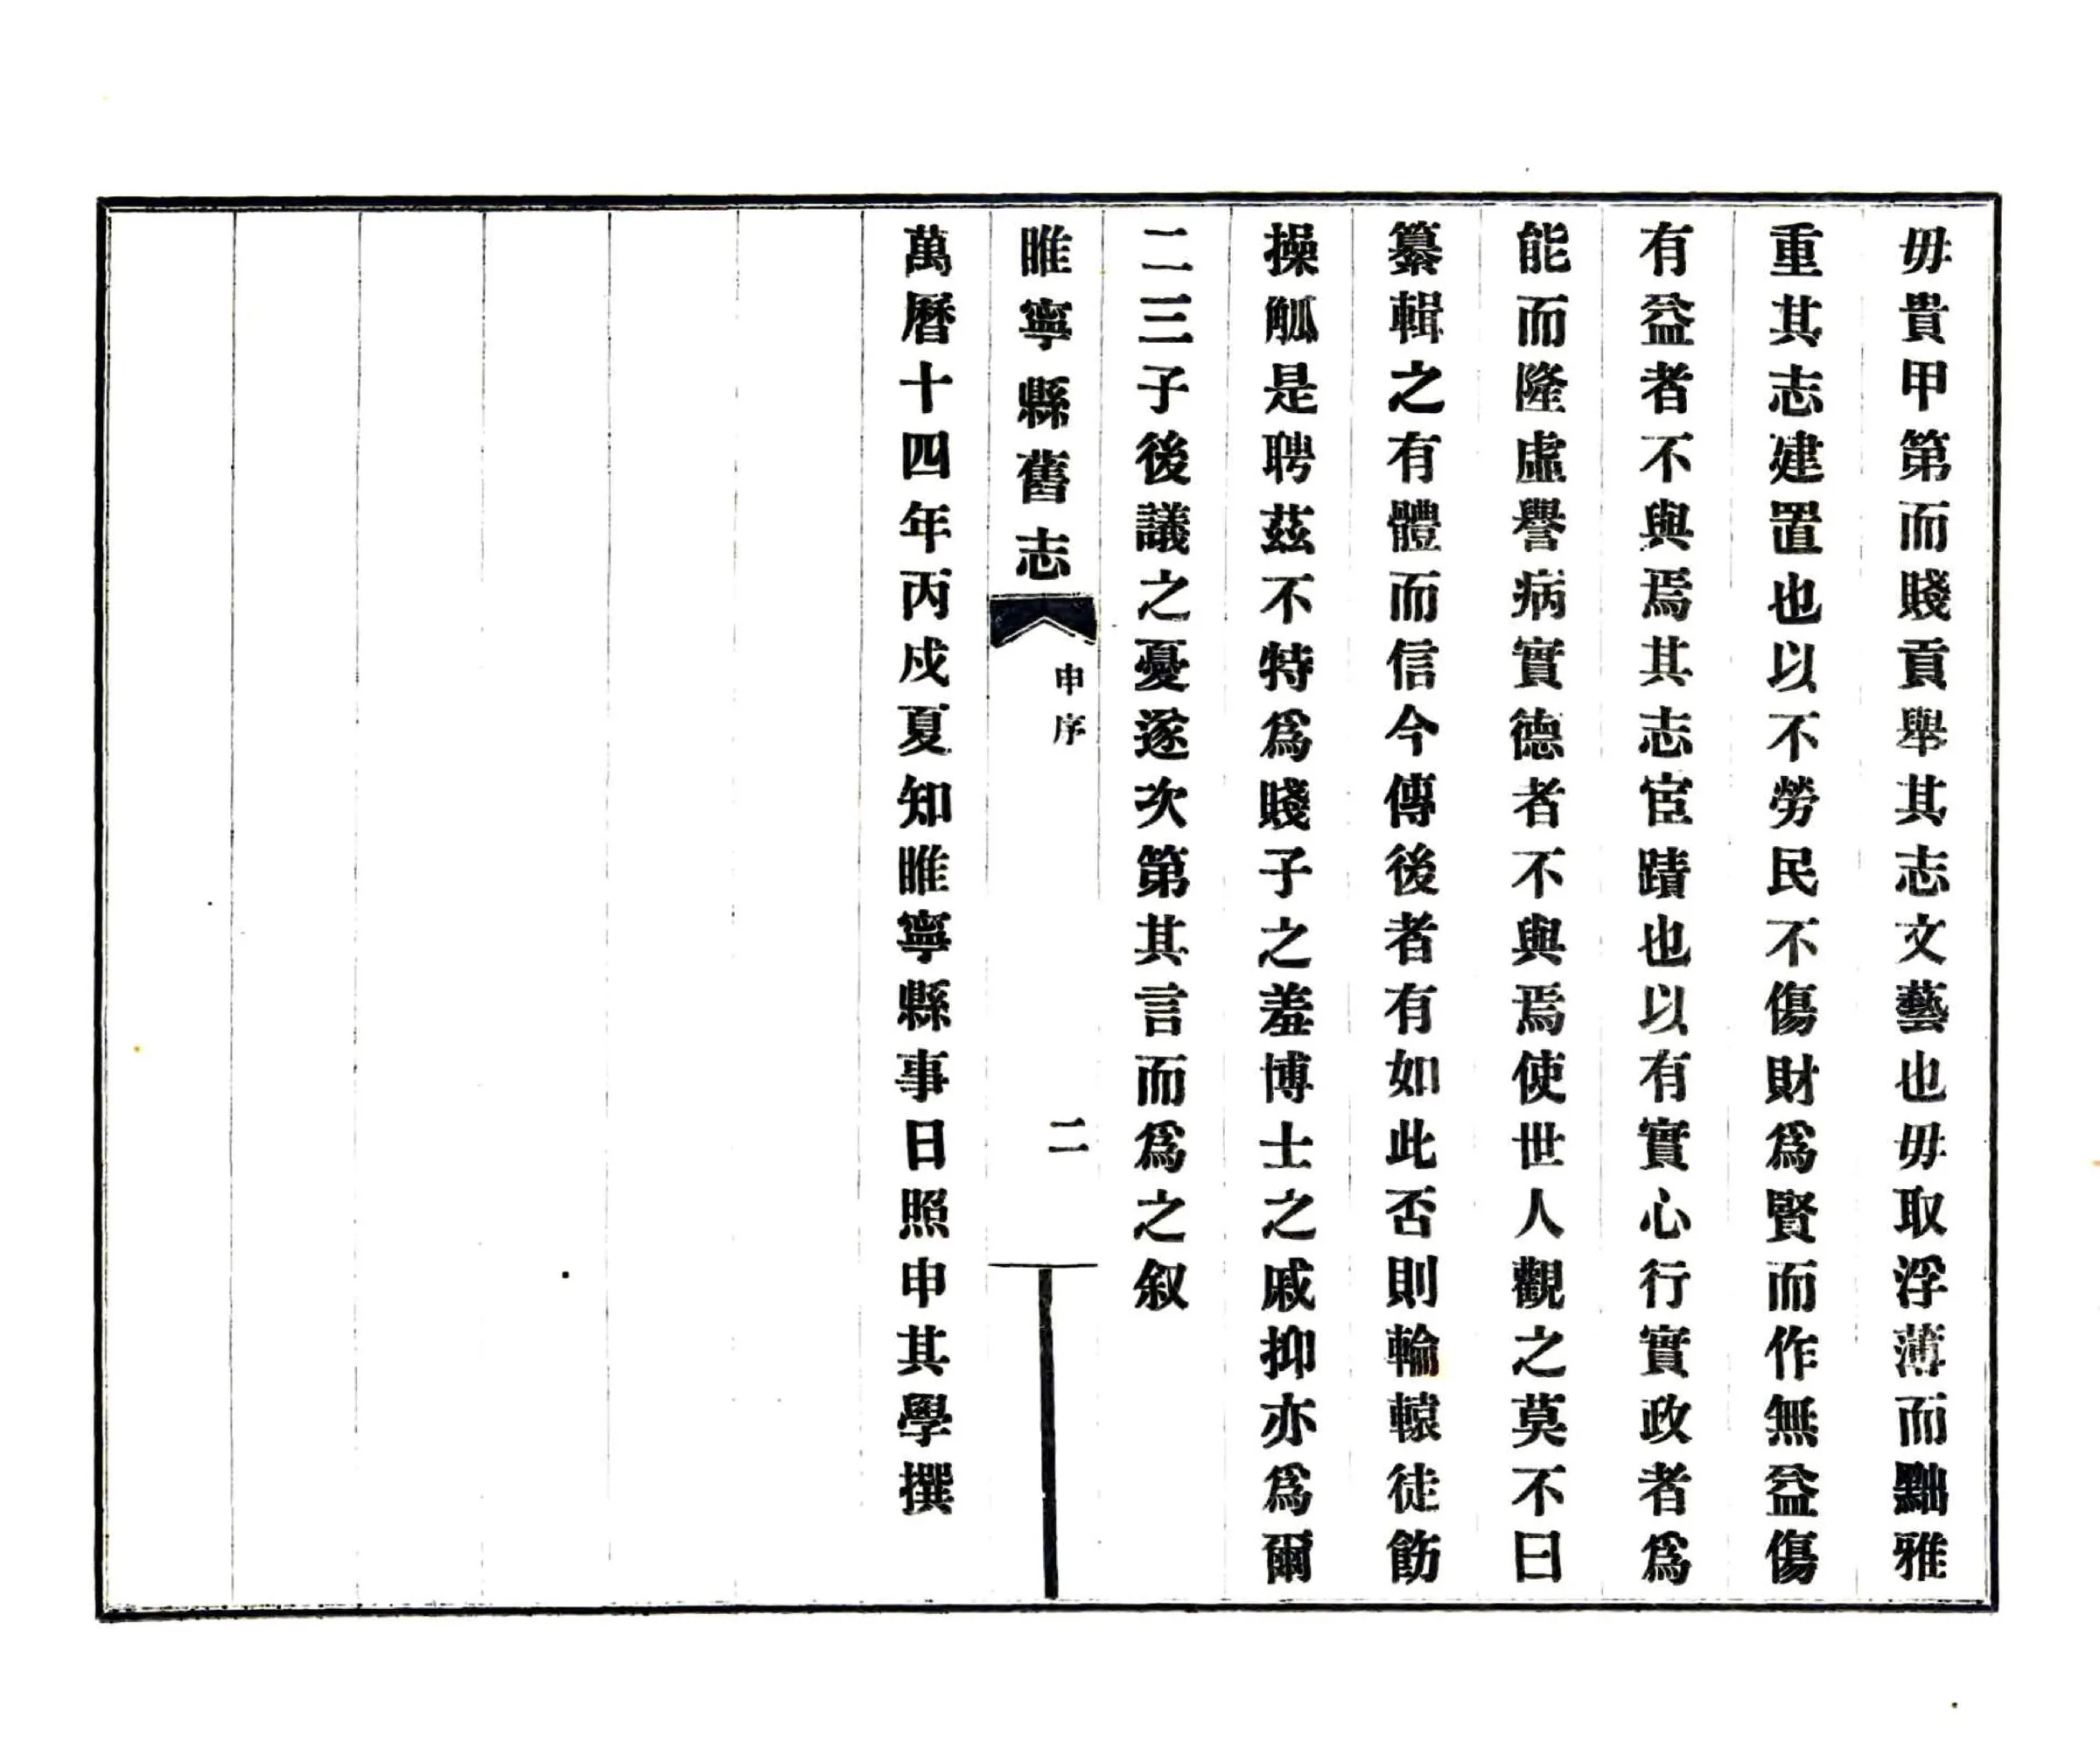 毋貴甲第而賤貢舉其志文藝也毋取浮薄而黜雅
重其志建置也以不勞民不傷財爲賢而作無益傷
有益者不與焉其志宦蹟也以有實心行實政者爲
能而隆虛譽病實德者不與焉使世人觀之莫不曰
纂輯之有體而信今傳後者有如此否則輪轅徒飭
操觚是聘茲不特爲賤子之羞博士之戚抑亦爲爾
二三子後議之憂遂次第其言而爲之叙
睢寧縣舊志 申序 二
萬曆十四年丙戍夏知睢寧縣事日照申其學撰